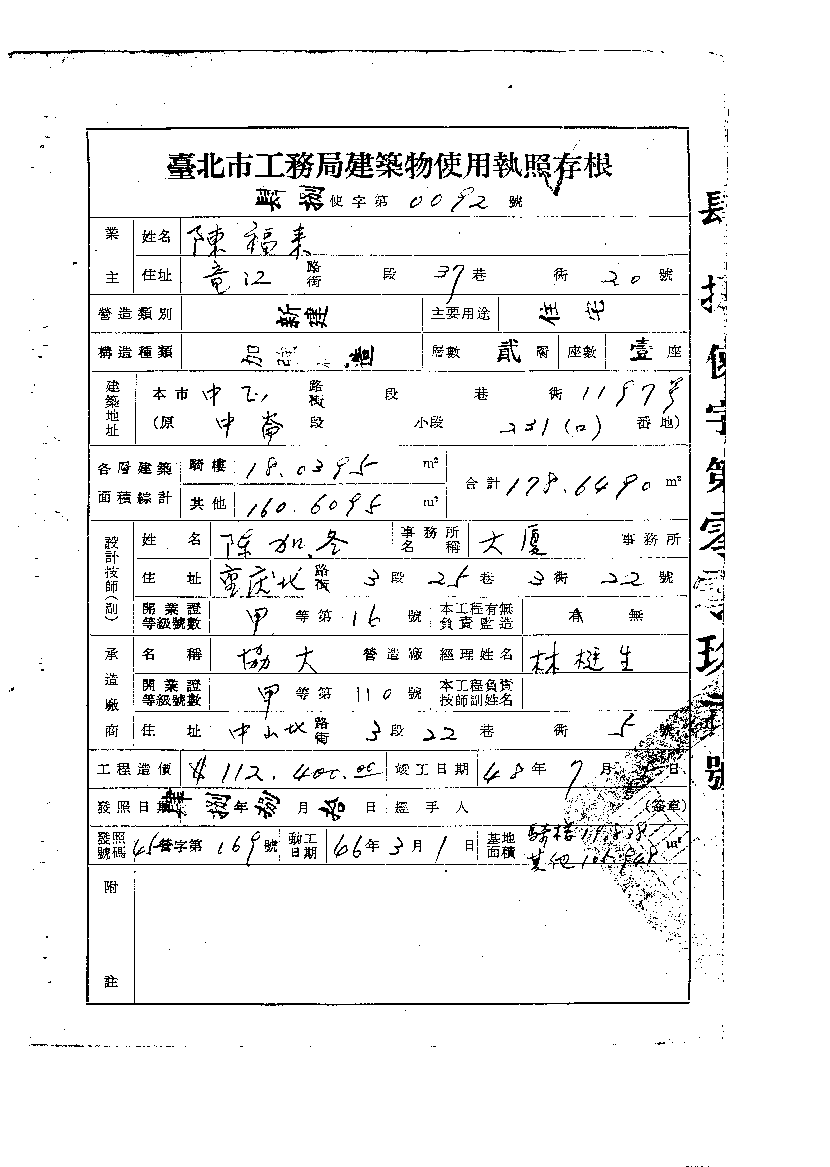 臺北市工務局建築物使用執照存根
捌使字第0092號
業主 姓名 陳福来
住址 竜江 路街 段 37巷 衖 20號
營造類別 新建 主要用途 住宅
構造種類 加強 造 層數 貳層 座數 壹座
建築地址 本市中正 路街 段 巷 衖 1197号
(原 中崙 段 小段 231(口) 番地)
各層建築面積綜計 騎樓 18.0395 m² 合計 178.6490 m²
其他 160.6095 m²
設計技師(副) 姓名 陳加冬 事務所名稱 大廈 事務所
住址 重庆北 路街 3段 25巷 3衖 22號
開業證等級號數 甲等第16號 本工程有無負責監造 有 無
承造廠商 名稱 協大 營造廠 經理姓名 林梃生
開業證等級號數 甲等第110號 本工程負責技師副姓名
住址 中山北 路街 3段 22巷 衖 5號
工程造價 $112,400.00 竣工日期 48年7月 日
發照日期 肆捌年捌月拾日 經手人 (簽章)
發照號碼 45營字第169號 動工日期 46年3月1日 基地面積 騎樓 m²
其他
附註
使字第零零玖 號